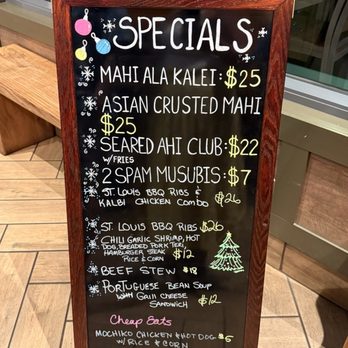 SPECIALS
MAHI ALA KALEI: $25
ASIAN CRUSTED MAHI
$25
SEARED AHI CLUB: $22
W/FRIES
2 SPAM MUSUBIS: $7
ST. LOUIS BBQ RIBS &
KALBI CHICKEN COMBO $26
ST LOUIS BBQ RIBS $26
CHILI GARLIC SHRIMP, HOT
DOG, BREADED PORK TERI,
HAMBURGER STEAK $12
RICE & CORN
BEEF STEW $18
PORTUGUESE BEAN SOUP
WITH GRILL CHEESE
SANDWICH $12
Cheap Eats
MOCHIKO CHICKEN & HOT DOG $5
W/ RICE & CORN